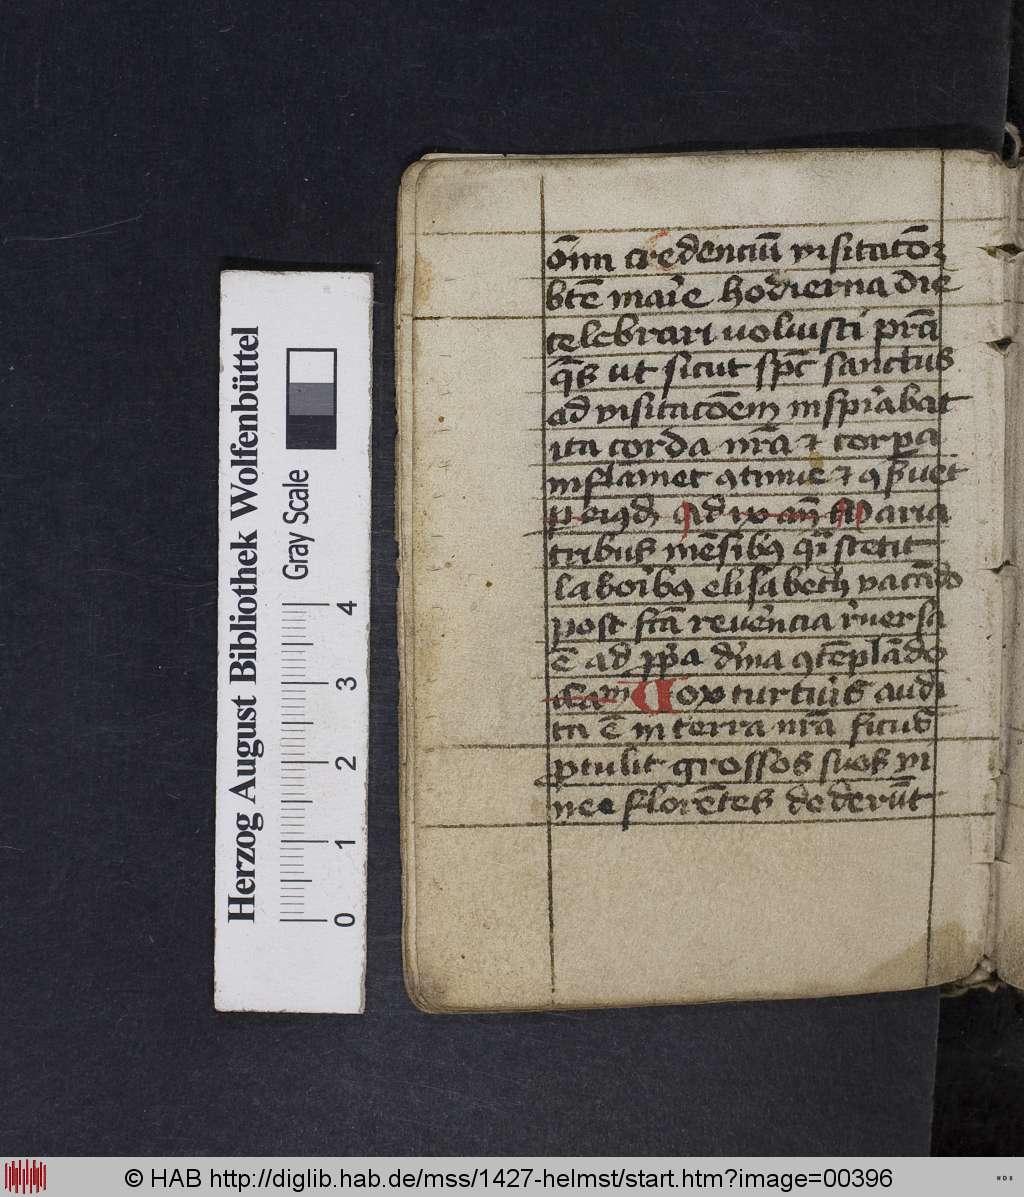 Herzog August Bibliothek Wolfenbüttel
Gray Scale
0 1 2 3 4
õim credenciũ visitacõꝫ
btẽ marie hodierna die
celebrari uoluisti pr̃a
q̃s ut sicut sp̃c sanctus
ad visitacõem inspirabat
ita corda nr̃a ⁊ corpora
inflãmet ꝯtinue ⁊ ꝯseruet
p eiꝰd Ad ix an̄ Maria
tribus mẽsibꝰ q̃ stetit
laboribꝰ elisabeth vacãdo
post sc̃a reuerẽcia reuersa
ẽ ad ꝓpria diuina ꝯtẽplãdo
Cap Vox turturis audi
ta ẽ in terra nr̃a ficus
ꝓtulit grossos suos vi
nee florẽtes dederũt
© HAB http://diglib.hab.de/mss/1427-helmst/start.htm?image=00396